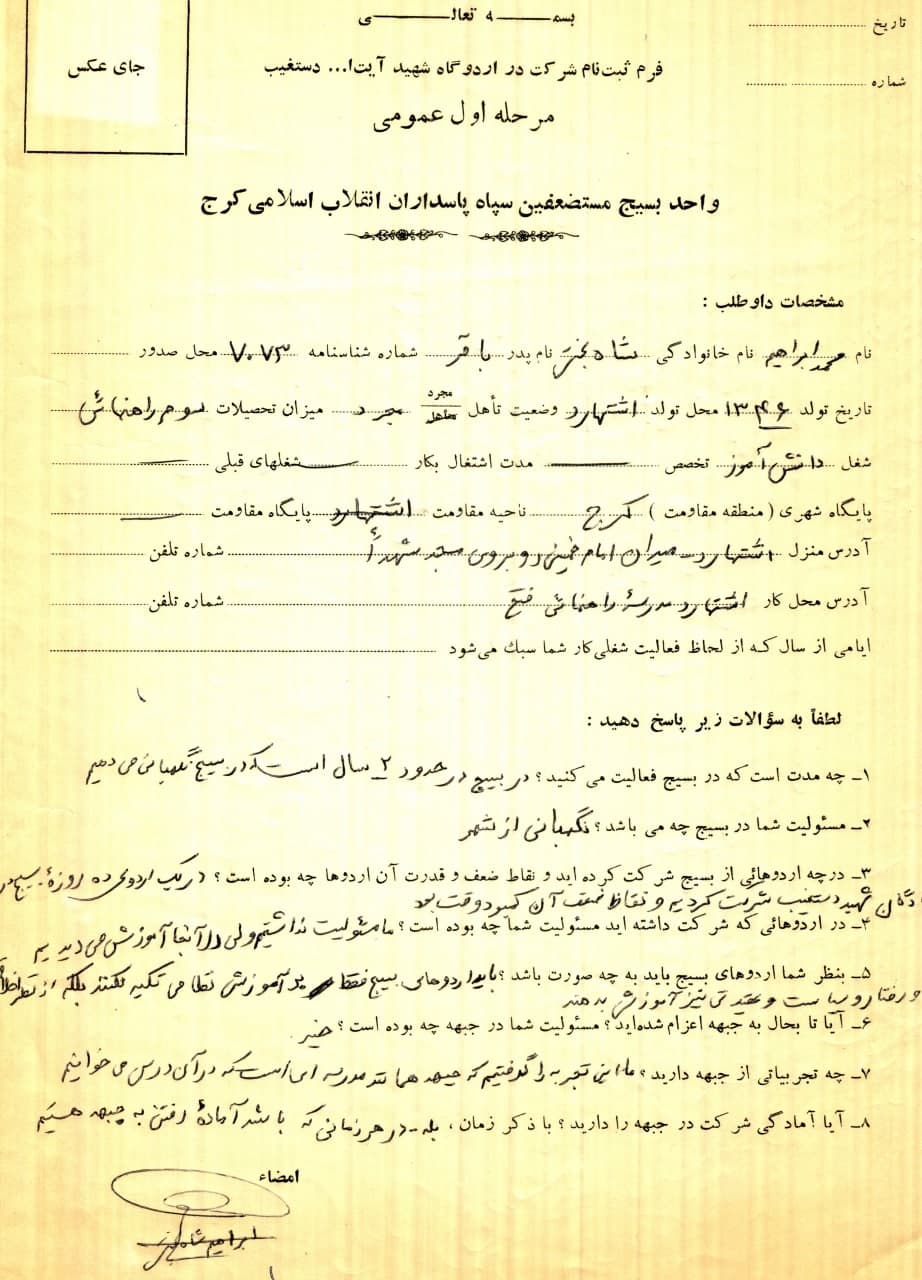 بسمه تعالی
تاریخ
جای عکس
فرم ثبت‌نام شرکت در اردوگاه شهید آیت‌ا... دستغیب
شماره
مرحله اول عمومی
واحد بسیج مستضعفین سپاه پاسداران انقلاب اسلامی کرج
مشخصات داوطلب :
نام محمدابراهیم نام خانوادگی شاه نام پدر باقر شماره شناسنامه ۷۰۷۳ محل صدور
تاریخ تولد ۱۳۴۶ محل تولد اشتهارد وضعیت تأهل مجرد متاهل مجرد میزان تحصیلات سوم راهنمائی
شغل دانش آموز تخصص — مدت اشتغال بکار — شغلهای قبلی —
پایگاه شهری (منطقه مقاومت) کرج ناحیه مقاومت اشتهارد پایگاه مقاومت —
آدرس منزل اشتهارد - میدان امام خمینی روبروی مسجد شهدا شماره تلفن
آدرس محل کار اشتهارد مدرسهٔ راهنمائی فتح شماره تلفن
ایامی از سال که از لحاظ فعالیت شغلی‌کار شما سبك می‌شود
لطفاً به سؤالات زیر پاسخ دهید :
۱ـ چه مدت است که در بسیج فعالیت می کنید؟ در بسیج در حدود ۲ سال است که در بسیج نگهبانی می دهیم
۲ـ مسئولیت شما در بسیج چه می باشد؟ نگهبانی از شهر
۳ـ درچه اردوهائی از بسیج شرکت کرده اید و نقاط ضعف و قدرت آن اردوها چه بوده است؟ در یک اردوی ده روزهٔ بسیج در
شهید دستغیب شرکت کردیم و نقاط ضعف آن کمبود وقت بود
۴ـ در اردوهائی که شرکت داشته اید مسئولیت شما چه بوده است؟ ما مسئولیت نداشتیم ولی در آنجا آموزش می دیدیم
۵ـ بنظر شما اردوهای بسیج باید به چه صورت باشد؟ باید اردوهای بسیج فقط بر آموزش نظامی تکیه نکنند بلکه از نظر اخلاق
و رفتار و سیاست و عقیدتی نیز آموزش بدهند
۶ـ آیا تا بحال به جبهه اعزام شده‌اید؟ مسئولیت شما در جبهه چه بوده است؟ خیر
۷ـ چه تجربیاتی از جبهه دارید؟ ما این تجربه را گرفتیم که جبهه همانند مدرسه ای است که در آن درس می خوانیم
۸ـ آیا آمادگی شرکت در جبهه را دارید؟ با ذکر زمان، بله - در هر زمانی که باشد آمادهٔ رفتن به جبهه هستیم
امضاء
ابراهیم شاه